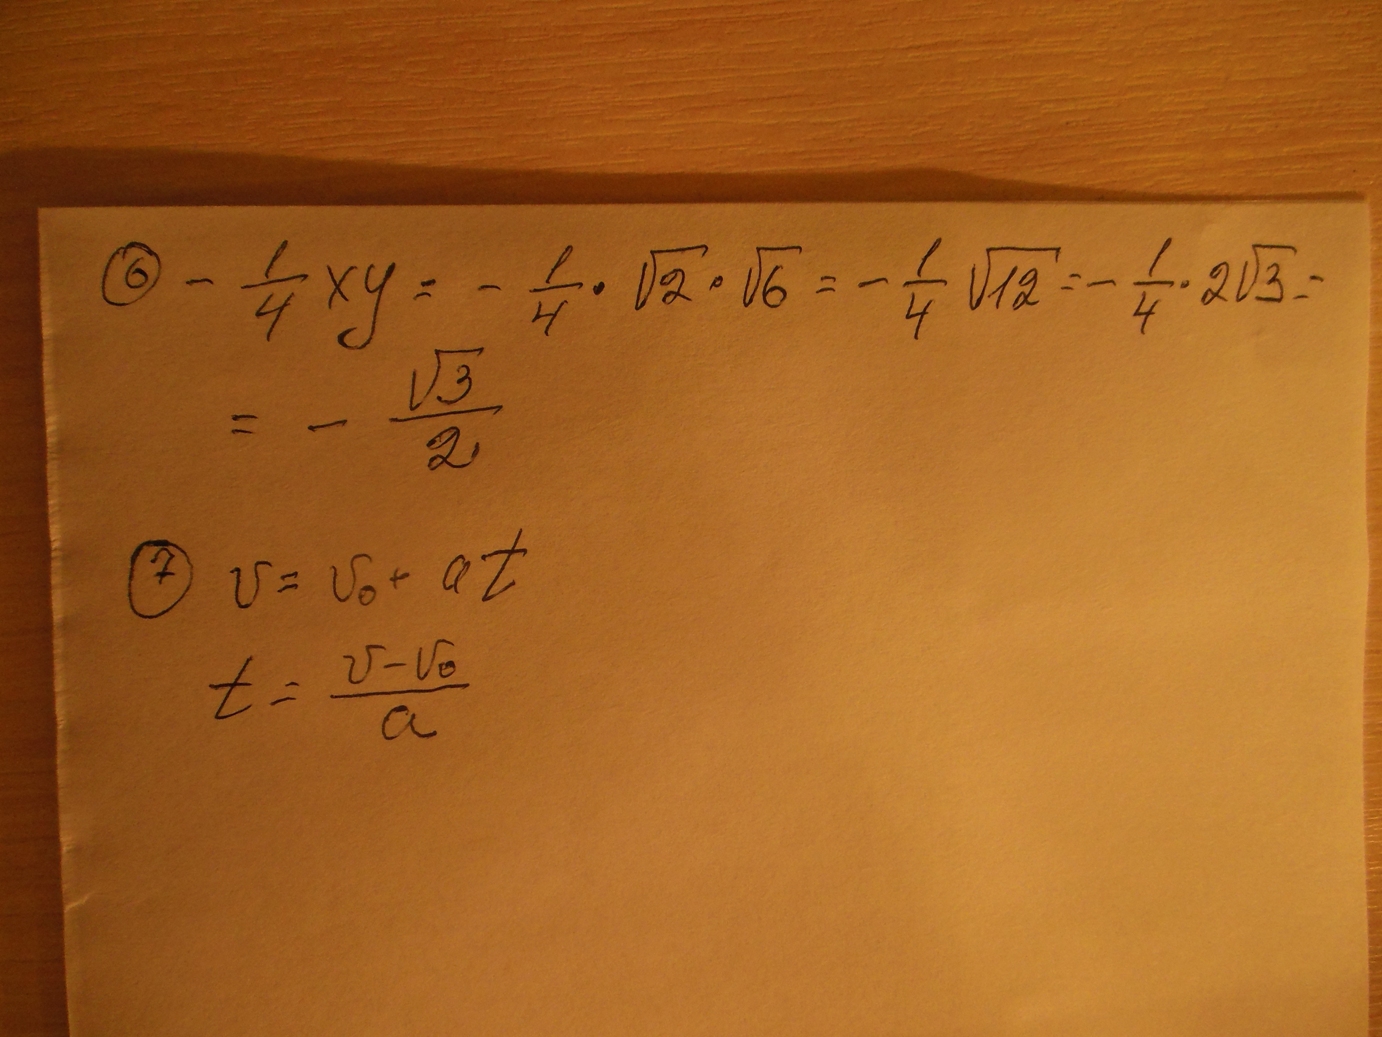 ⑥ - 1/4 xy = - 1/4 · √2 · √6 = - 1/4 √12 = - 1/4 · 2√3 =
= - √3/2
⑦ v = v₀ + at
t = (v - v₀)/a